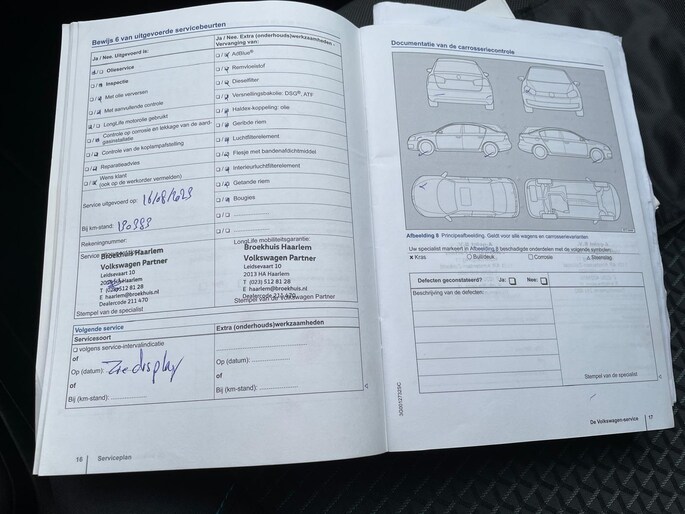 Bewijs 6 van uitgevoerde servicebeurten
Ja / Nee. Uitgevoerd is:
Olieservice
Inspectie
Met olie verversen
Met aanvullende controle
LongLife motorolie gebruikt
Controle op corrosie en lekkage van de aard-
gasinstallatie
Controle van de koplampafstelling
Reparatieadvies
Wens klant
(ook op de werkorder vermelden)
Service uitgevoerd op: 16/08/2023
Bij km-stand: 130383
Rekeningnummer:
Service
Broekhuis Haarlem
Volkswagen Partner
Leidsevaart 10
Haarlem
512 81 28
E haarlem@broekhuis.nl
Dealercode 211 470
Stempel van de specialist
Ja / Nee. Extra (onderhouds)werkzaamheden
Vervanging van:
AdBlue®
Remvloeistof
Dieselfilter
Versnellingsbakolie: DSG®, ATF
Haldex-koppeling: olie
Geribde riem
Luchtfilterelement
Flesje met bandenafdichtmiddel
Interieurluchtfilterelement
Getande riem
Bougies
LongLife mobiliteitsgarantie:
Broekhuis Haarlem
Volkswagen Partner
Leidsevaart 10
2013 HA Haarlem
T (023) 512 81 28
E haarlem@broekhuis.nl
Dealercode 211 470
Stempel van de Volkswagen Partner
Volgende service
Servicesoort
volgens service-intervalindicatie
of
Op (datum): Zie display
of
Bij (km-stand):
Extra (onderhouds)werkzaamheden
Op (datum):
of
Bij (km-stand):
16 Serviceplan
Documentatie van de carrosseriecontrole
Afbeelding 8 Principeafbeelding. Geldt voor alle wagens en carrosserievarianten
Uw specialist markeert in Afbeelding 8 beschadigde onderdelen met de volgende symbolen:
× Kras
Buil/deuk
Corrosie
△ Steenslag
Defecten geconstateerd? Ja: Nee:
Beschrijving van de defecten:
Stempel van de specialist
De Volkswagen-service 17